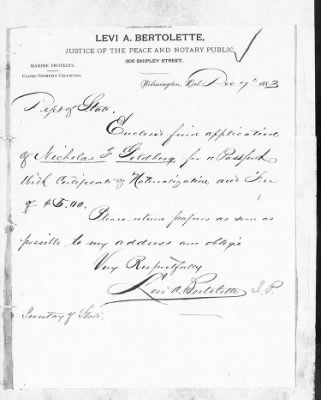 LEVI A. BERTOLETTE,
JUSTICE OF THE PEACE AND NOTARY PUBLIC,
305 SHIPLEY STREET.
MARINE PROTESTS.
CLAIMS PROMPTLY COLLECTED.
Wilmington, Del. Dec 7th 1883
Dept of State.
Enclosed find application
of Nicholas F Goldberg for a Passport
With Certificate of Naturalization and Fee
of $5.00.
Please return papers as soon as
possible to my address and oblige
Very Respectfully
Levi A. Bertolette J. P.
Secretary of State.